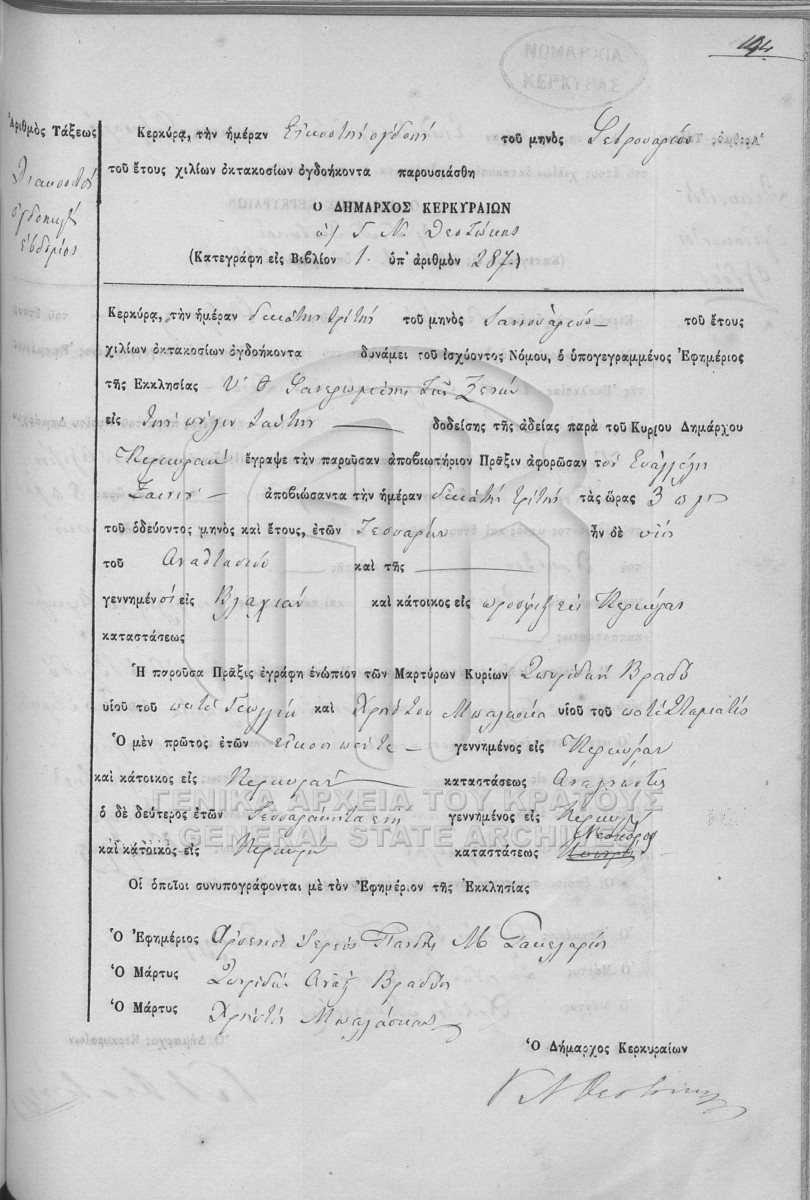 194
ΝΟΜΑΡΧΙΑ
ΚΕΡΚΥΡΑΣ
Ἀριθμὸς Τάξεως
Διακοσιοστός
ὀγδοηκοστός
ἕβδομος
Κερκύρᾳ, τὴν ἡμέραν Εἰκοστὴν ὀγδόην τοῦ μηνὸς Φεβρουαρίου
τοῦ ἔτους χιλίων ὀκτακοσίων ὀγδοήκοντα παρουσιάσθη
Ο ΔΗΜΑΡΧΟΣ ΚΕΡΚΥΡΑΙΩΝ
Γ Ν. Θεοτόκης
(Κατεγράφη εἰς Βιβλίον 1. ὑπ' ἀριθμὸν 287.)
Κερκύρᾳ, τὴν ἡμέραν δεκάτην τρίτην τοῦ μηνὸς Ἰανουαρίου τοῦ ἔτους
χιλίων ὀκτακοσίων ὀγδοήκοντα δυνάμει τοῦ ἰσχύοντος Νόμου, ὁ ὑπογεγραμμένος Ἐφημέριος
τῆς Ἐκκλησίας Υ Θ Φανερωμένης τῶν Ξένων
εἰς τὴν πόλιν ταύτην δοδείσης τῆς ἀδείας παρὰ τοῦ Κυρίου Δημάρχου
Κερκυραίων ἔγραψε τὴν παροῦσαν ἀποβιωτήριον Πρᾶξιν ἀφορῶσαν τὸν Εὐάγγελον
ἀποβιώσαντα τὴν ἡμέραν δεκάτην τρίτην τὰς ὥρας 3 π μ
τοῦ ὁδεύοντος μηνὸς καὶ ἔτους, ἐτῶν Τεσσάρων ἦν δὲ υἱὸς
τοῦ Ἀναστασίου καὶ τῆς
γεννημένος εἰς Βλαχίαν καὶ κάτοικος εἰς πρόσφυξ εἰς Κέρκυραν
καταστάσεως
Ἡ παροῦσα Πρᾶξις ἐγράφη ἐνώπιον τῶν Μαρτύρων Κυρίων Σπυρίδων Βραδῆ
υἱοῦ τοῦ ποτέ καὶ Χρήστου Μπαλάσκα υἱοῦ τοῦ ποτέ Σταμάτη
Ὁ μὲν πρῶτος ἐτῶν εἴκοσι πέντε γεννημένος εἰς Κέρκυραν
καὶ κάτοικος εἰς Κέρκυραν καταστάσεως Ἀναγνώστης
ὁ δὲ δεύτερος ἐτῶν Τεσσαράκοντα ἓξ γεννημένος εἰς Κέρκυραν
καὶ κάτοικος εἰς Κέρκυραν καταστάσεως Νεωκόρος
Οἱ ὁποῖοι συνυπογράφονται μὲ τὸν Ἐφημέριον τῆς Ἐκκλησίας
Ὁ Ἐφημέριος Ἀρσένιος Ἱερεὺς Παντῆς Μ Σακελάριος
Ὁ Μάρτυς Σπυρίδων Βραδῆς
Ὁ Μάρτυς Χρήστος Μπαλάσκας
Ὁ Δήμαρχος Κερκυραίων
Γ Ν Θεοτόκης
ΓΕΝΙΚΑ ΑΡΧΕΙΑ ΤΟΥ ΚΡΑΤΟΥΣ
GENERAL STATE ARCHIVES